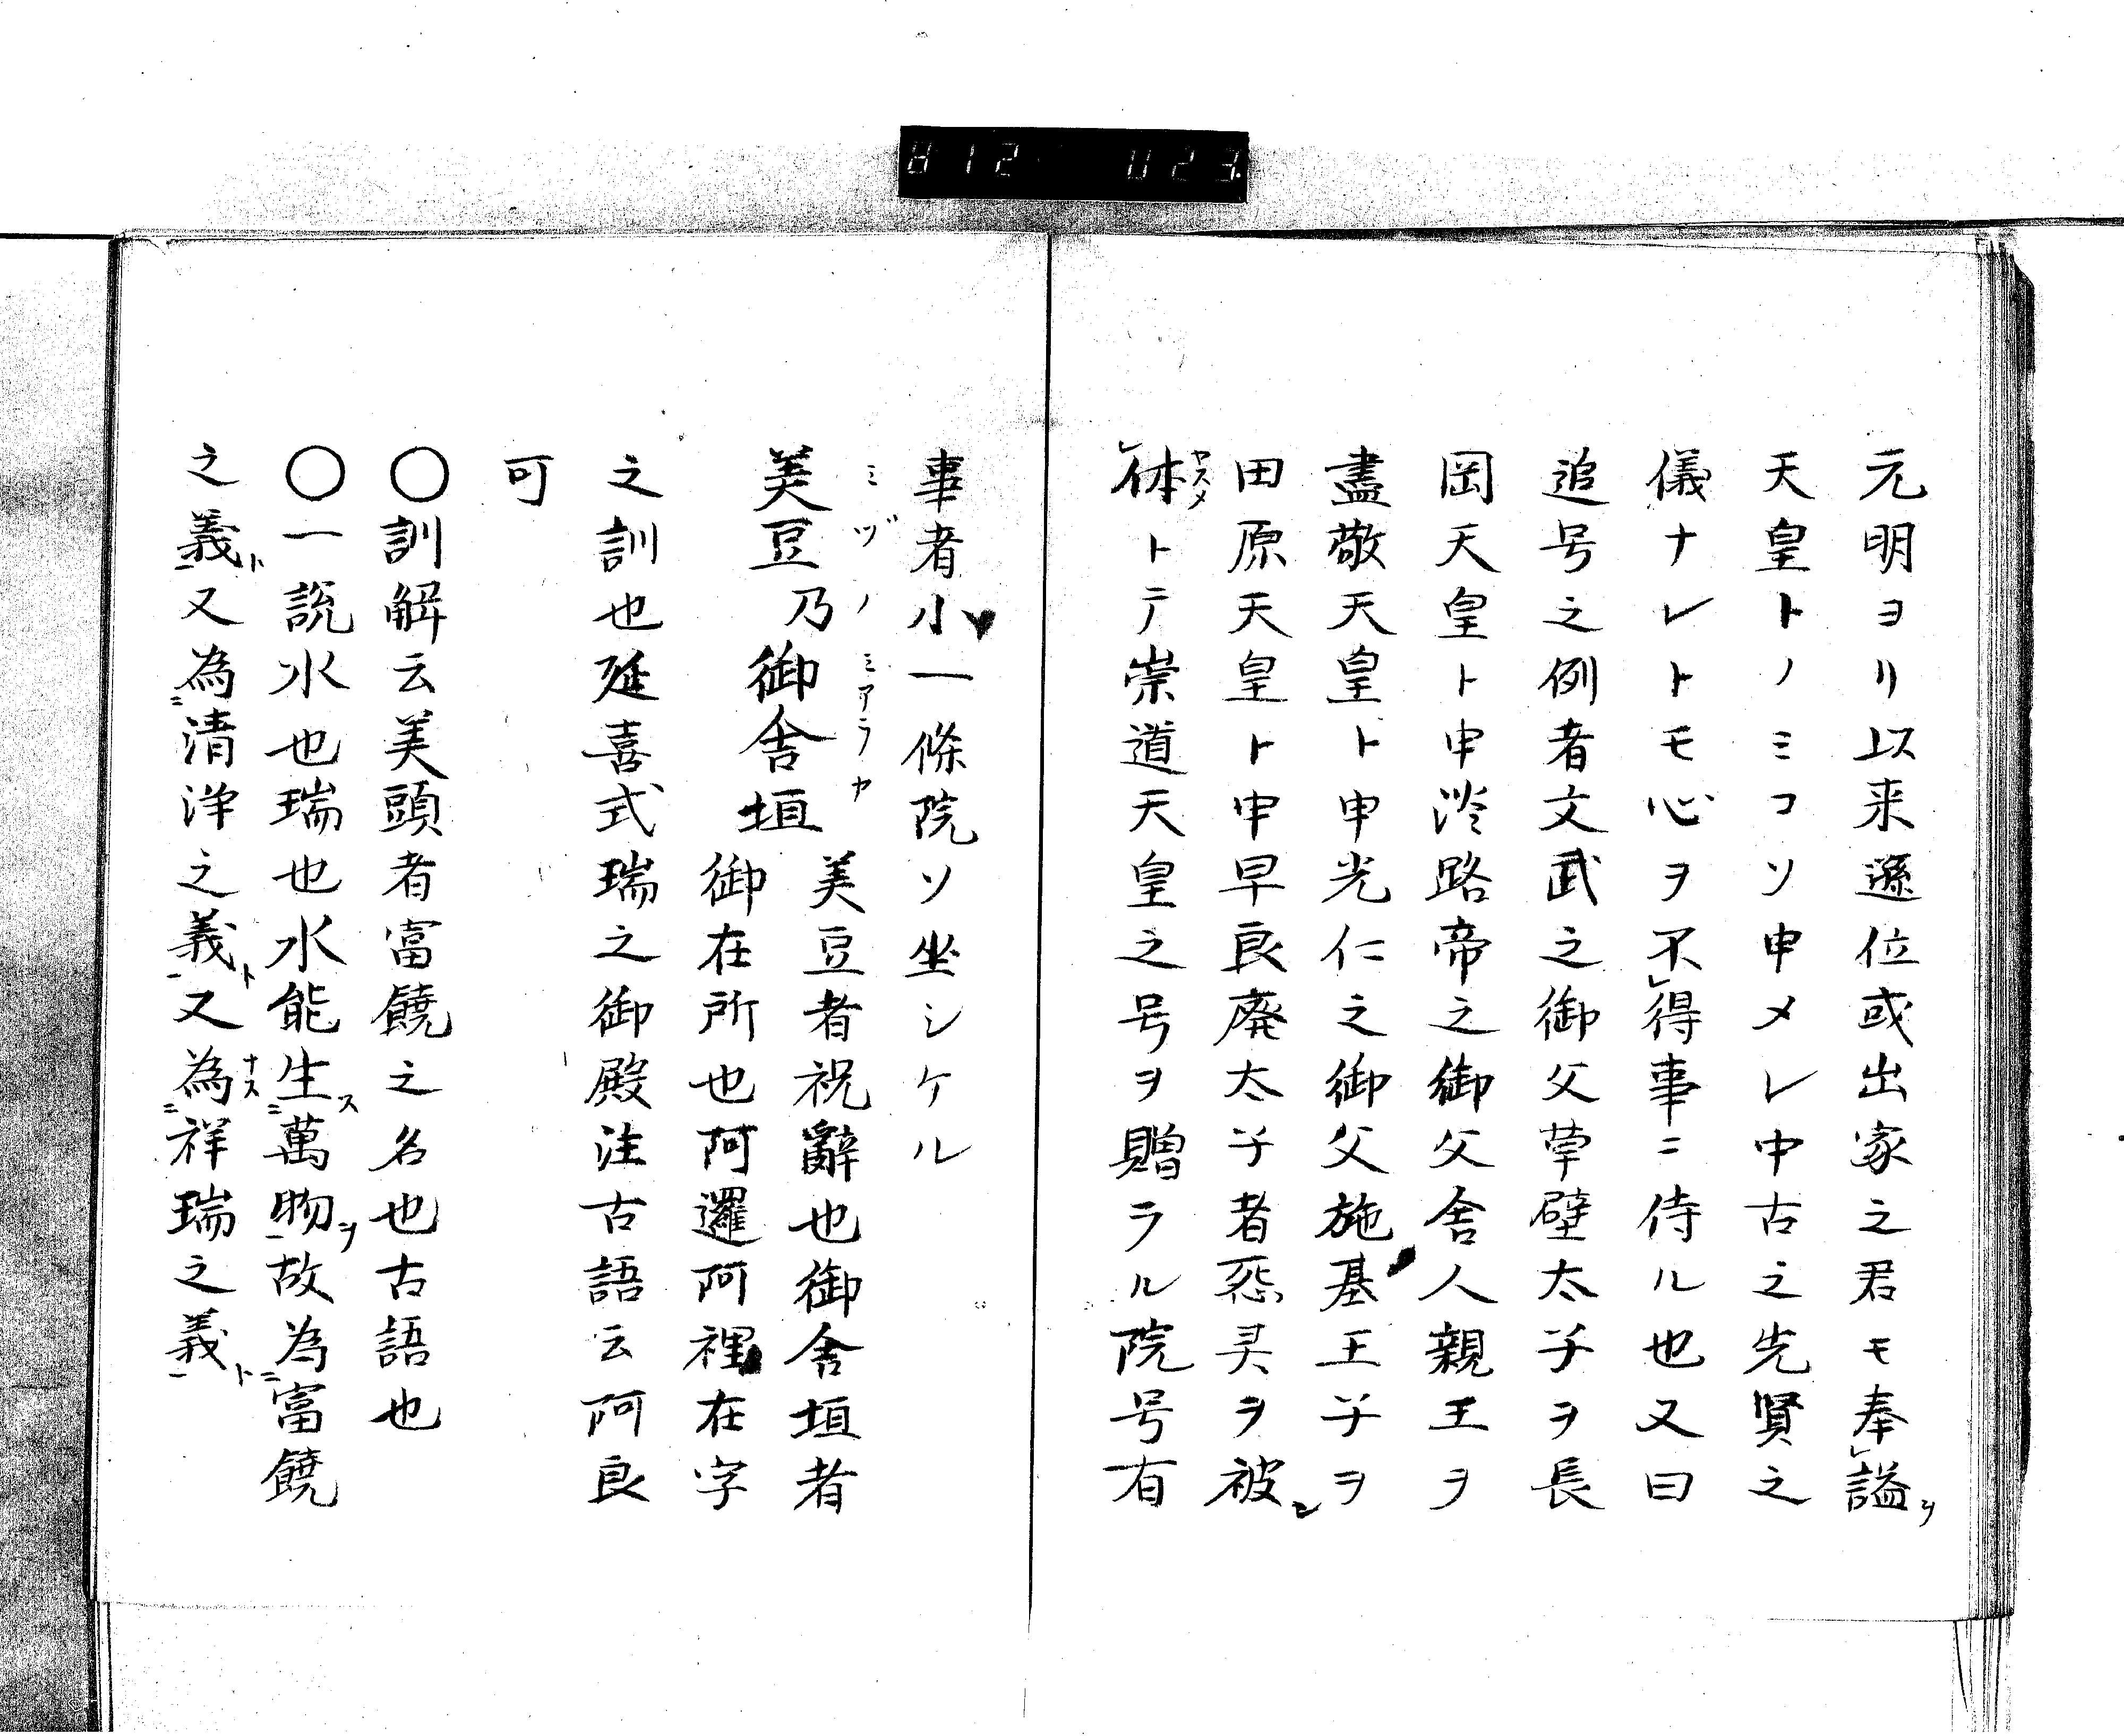 812 023
元明ヨリ以来遜位或出家之君モ奉レ謚リ
天皇トノミコソ申メレ中古之先賢之
儀ナレトモ心ヲ不レ得事ニ侍ル也又曰
追号之例者文武之御父草壁太子ヲ長
岡天皇ト申淡路帝之御父舎人親王ヲ
盡敬天皇ト申光仁之御父施基王子ヲ
田原天皇ト申早良廃太子者怨灵ヲ被
レ休ヤスメトテ崇道天皇之号ヲ贈ラル院号有
事者小一條院ソ坐シケル
美豆乃御舎垣ミヅノミアラヤ
美豆者祝辭也御舎垣者
御在所也阿邏阿裡在字
之訓也延喜式瑞之御殿注古語云阿良
可
〇訓解云美頭者富饒之名也古語也
〇一説水也瑞也水能生ス二萬物ヲ一故為二富饒
之義ト一又為二清浄之義ト一又為ナス二祥瑞之義ト一